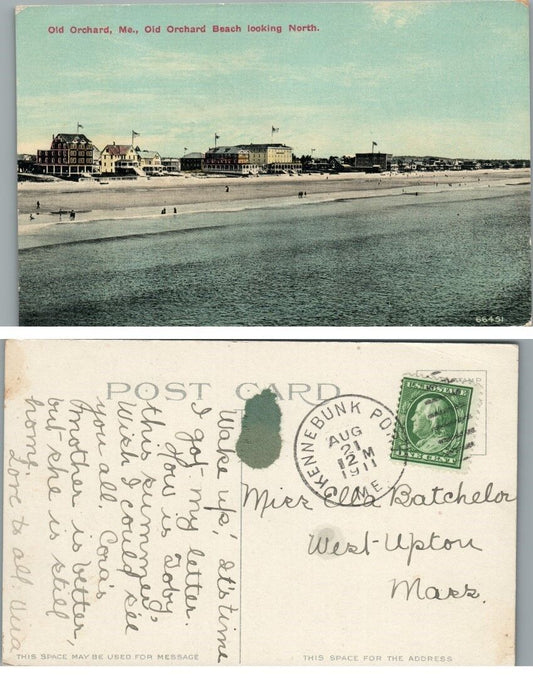 Old Orchard, Me., Old Orchard Beach looking North.
66451
POST CARD
Wake up! It's time
I got my letter.
How is Toby
this summer,
Wish I could see
you all. Cora's
mother is better,
but she is still
home.
Love to all.
KENNEBUNK PORT
AUG
21
12 M
1911
ME.
U.S. POSTAGE
ONE CENT
Miss Ella Batchelor
West-Upton
Mass.
THIS SPACE MAY BE USED FOR MESSAGE
THIS SPACE FOR THE ADDRESS